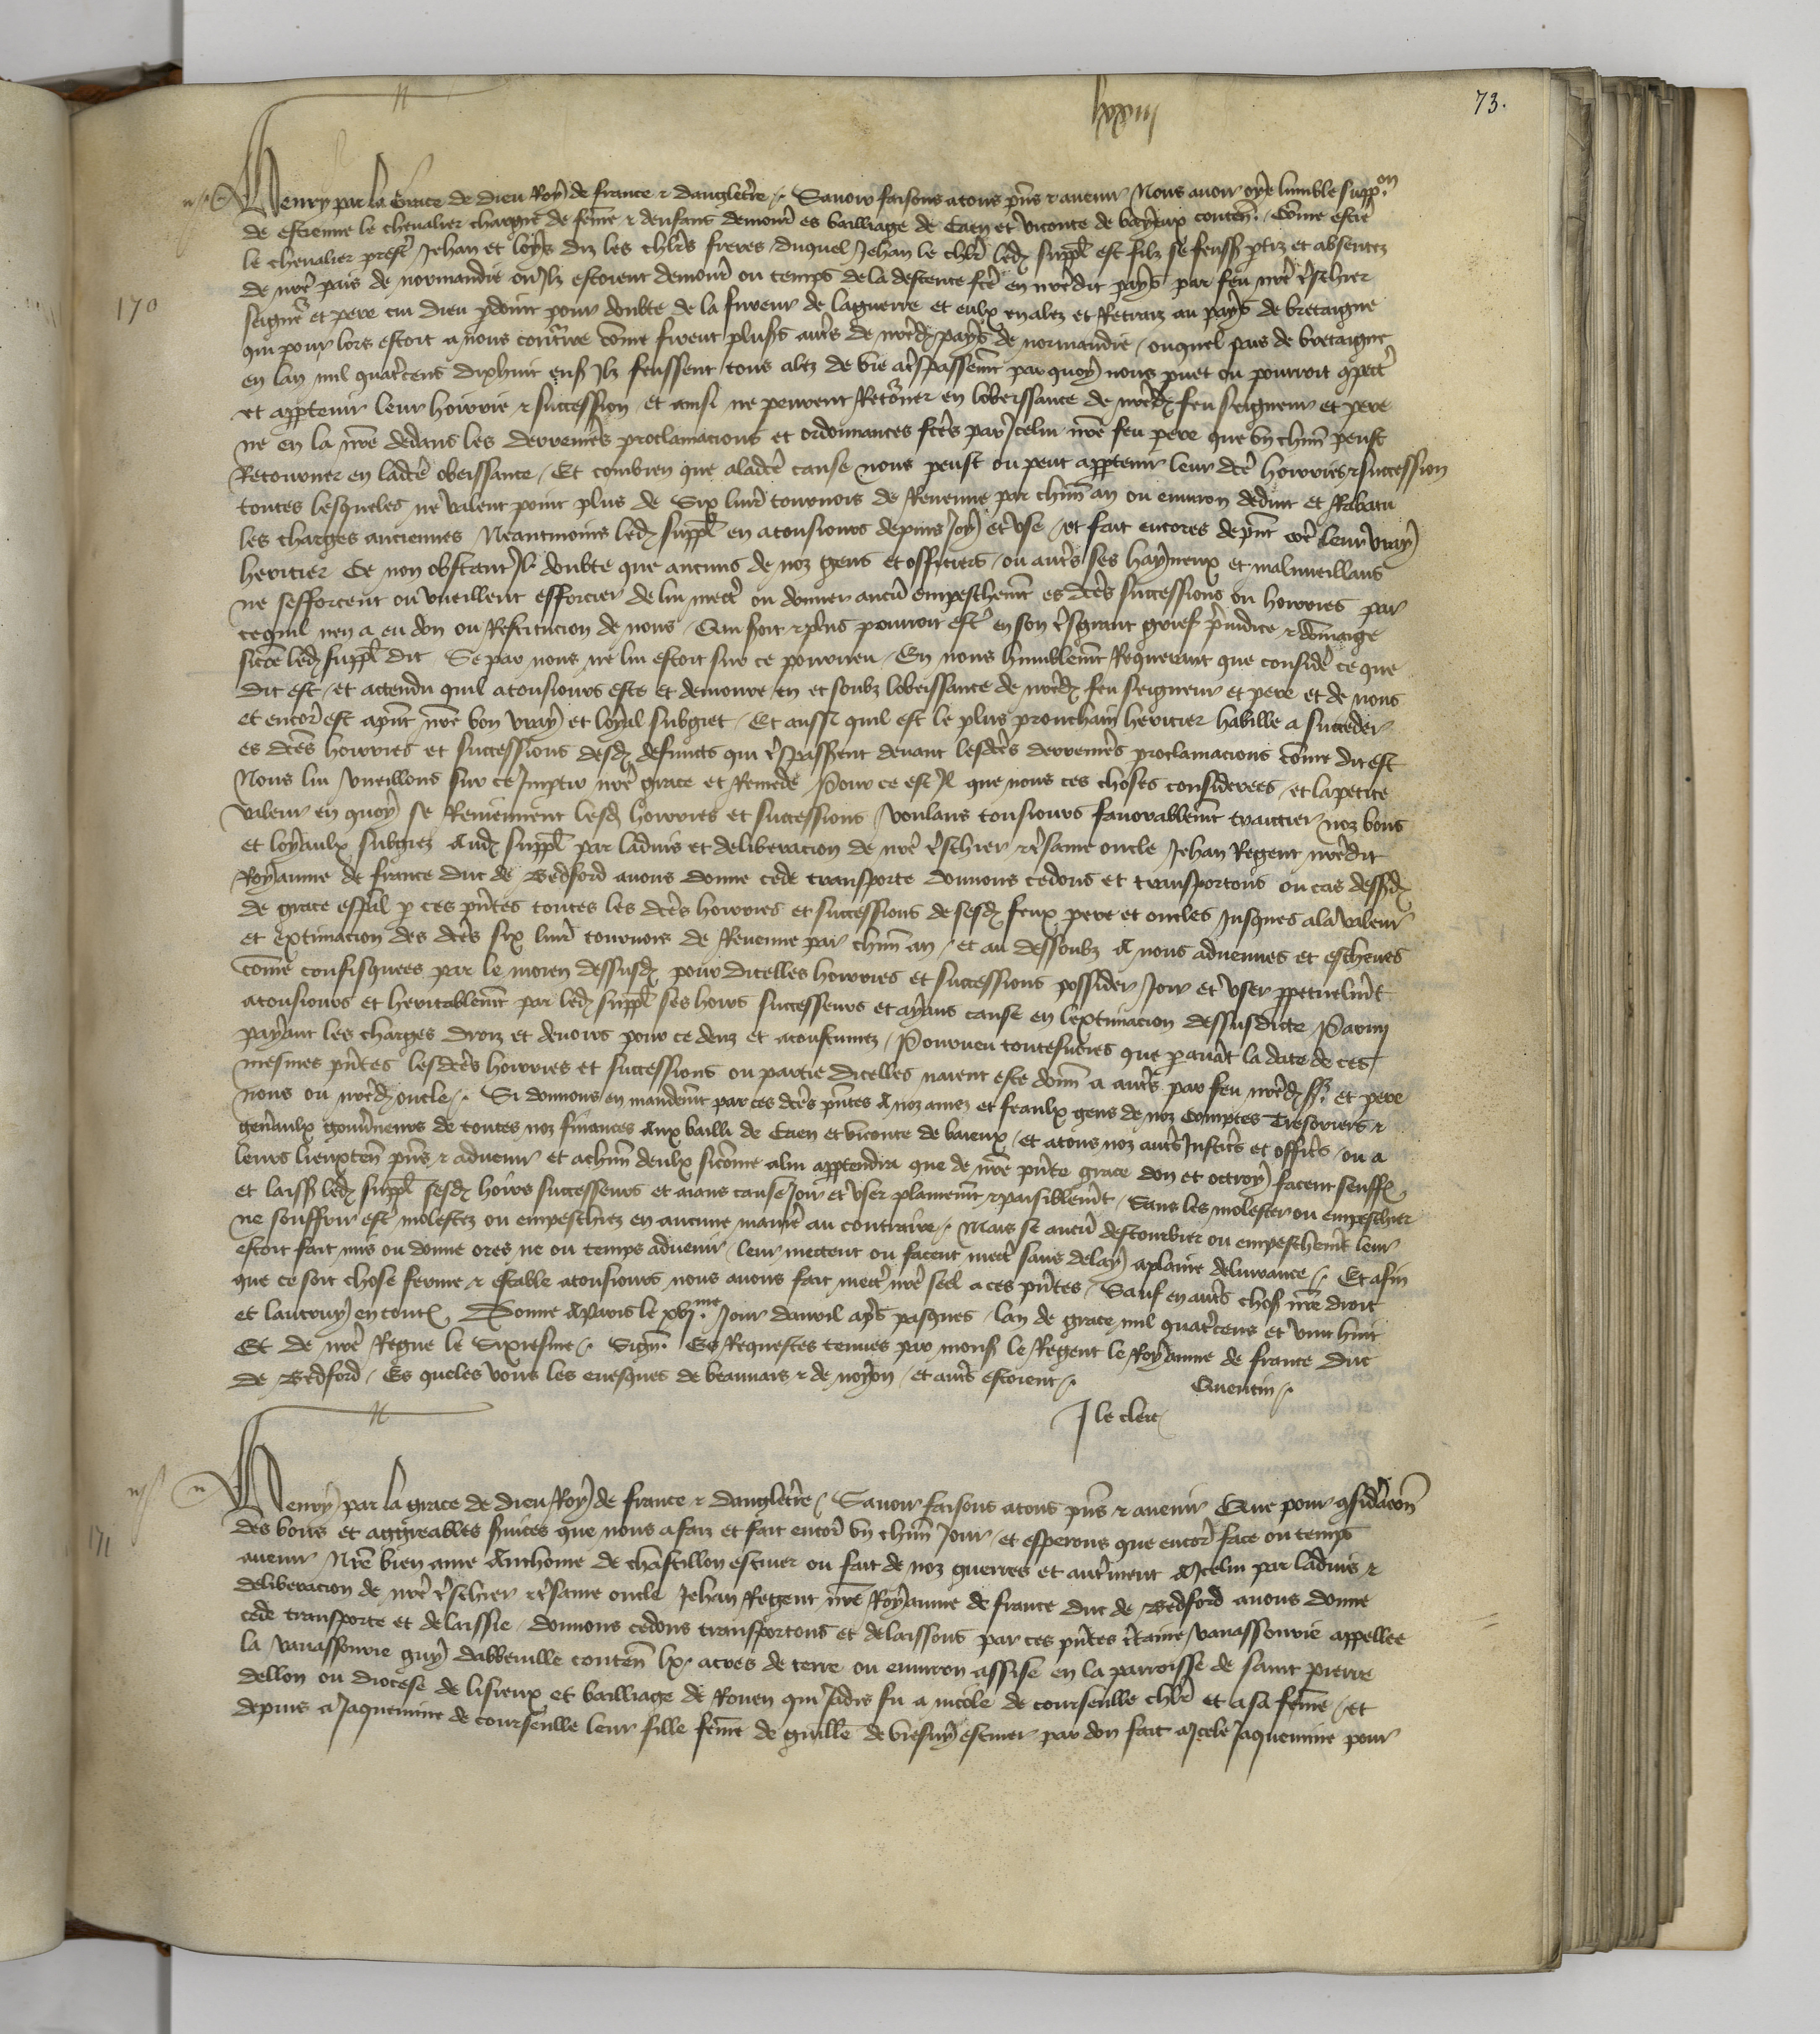 lxxiii
73.
Henry par la grace de dieu Roy de france & dangletre. Savoir faisons a tous pns & avenir Nous avoir oye lumble suppon
de estienne le chevalier chargie de feme & denfans demour es bailliage de Caen et viconte de bayeux conten. Come estie
le chevalier prest Jehan et loys diz les chlrs freres duquel Jehan le chlr led suppl est filz se feuss ptiz et absentez
de nre pais de normandie ou Ilz estoient demour ou temps de la descente fce en nredit pays par feu nre treschier
170
seignr et pere cui dieu pdoint pour doubte de la fureur de la guerre et eulx en alez et Retraiz au pays de bretaigne
qui pour lors estoit a nous contraire come firent plus autrs de nred pays de normandie ouquel pais de bretaigne
en lan mil quatrcens dixhuit ens Ilz feussent tous alez de vie a trespassemt par quoy nous puet ou pourroit compect
et apptenir leur hoirrie & succession et ainsi ne peurent Retorner en lobeissance de nred feu seigneur et pere
ne en la nre dedans les derrenies proclamacions et ordonnances fces par Icelui nre feu pere que un chun peust
Retourner en ladce obeissance Et combien que a ladce cause nous peust ou peut apptenir leur dce hoirries & succession
toutes lesqueles ne valent point plus de Six livr tournois de Revenue par chun an ou environ deduit et Rabatu
les charges anciennes Neantmoins led suppl en a tousiours depuis Joy et use et fait encores de pnt coe leur vray
heritier Ce non obstant Il doubte que aucuns de noz gens et officiers ou autrs ses hayneux et malvueillans
ne sefforcent ou vueillent efforcier de lui mectr ou donner aucun empeschemt es dces successions ou hoirries par
ce quil nen a eu don ou Restitucion de nous Qui soit & plus pourroit estr en son tresgrant grief preiudice & domaige
sicoe led suppl dit Se par nous ne lui estoit sur ce pourveu En nous humblemt Requerant que consider ce que
dit est et actendu quil a tousiours este et demoure en et soubz lobeissance de nred feu seigneur et pere et de nous
et encor est a pnt nre bon vray et loyal subgiet Et aussi quil est le plus prouchain heritier habille a succeder
es dces hoirries et successions desd defuncts qui trespasserent devant lesdces derrenies proclamacions come dit est
Nous lui vueillons sur ce Impartir nre grace et Remede Pour ce est Il que nous ces choses considerees et la petite
valeur en quoy se Reviennent lesd hoirries et successions voulans tousiours favorablemt traictier noz bons
et loyaulx subgiez Aud suppl par ladvis et deliberacion de nre treschier & tresame oncle Jehan Regent nredit
Royaume de france duc de Bedford avons donne cede transporte donnons cedons et transportons ou cas dessusd
de grace espal p ces pntes toutes les dces hoirries et successions de sesd feux pere et oncles Jusques a la valeur
et extimacion des dces six livr tournois de Revenue par chun an et au dessoubz A nous advenues et escheues
come confisquees par le moien dessusd pour dicelles hoirries et successions possider Joir et user ppetuelmt
a tousiours et heritablemt par led suppl ses hoirs successeurs et ayans cause en lextimacion dessusdicte Parmi
payant les charges droiz et devoirs pour ce deuz et acoustumez Pourveu toutesvoies que p avat la date de ces
mesmes pntes lesdces hoirries et successions ou partie dicelles naient este donn a autrs par feu nred sr et pere
nous ou nred oncle. Si donnons en mandemt par ces dces pntes A noz amez et feaulx gens de noz Comptes Tresoriers &
genaulx gouvneurs de toutes noz finances Aux bailli de Caen et viconte de baieux et a tous noz autrs Justicrs et officrs ou a
leurs lieuxten pns & advenir et a chun deulx sicome a lui apptendra que de nre pnte grace don et octroy facent seuffr
et laiss led suppl sesd hoirs successeurs et aians cause Joir et user plainemt & paisiblemt Sans les molester ou empeschier
ne souffrir estr molestez ou empeschiez en aucune manier au contraire. Mais se aucun destourbier ou empeschemt leur
estoit fait mis ou donne ores ne ou temps advenir leur mectent ou facent mectr sans delay a plaine delivrance. Et afin
que ce soit chose ferme & estable a tousiours nous avons fait mectr nre seel a ces pntes Sauf en autrs chos nre droit
et lautruy en toutes Donne A Paris le xvi.me Jour davril aps pasques lan de grace mil quatrcens et vint huit
Et de nre Regne le Sixiesme. Sign. Es Requestes tenues par mons le Regent le Royaume de france duc
de Bedford Es queles vous les evesques de beauvais & de noyon et autrs estoient.
Quentin.
J le clerc
Henry par la grace de dieu Roy de france & dangletre Savoir faisons a tous pns & avenir Que pour considacon
171
des bons et aggreables svices que nous a faiz et fait encor un chun Jour et esperons que encor face ou temps
avenir Nre bien ame Anthoine de chastillon escuier ou fait de noz guerres et autrment A Icelui par ladvis &
deliberacion de nre treschier & tresame oncle Jehan Regent nre Royaume de france duc de Bedford avons donne
cede transporte et delaissie donnons cedons transportons et delaissons par ces pntes ctaine vavassourie appellee
la vavassourie guy dabbeville conten lx. acres de terre ou environ assise en la parroisse de saint pierre
dellon ou diocese de lisieux et bailliage de Rouen qui Jadis fu a nicole de courseulle chlr et a sa feme et
depuis a Jaquemine de courseulle leur fille feme de guille de escuier par don fait a Icele Jaquemine pour